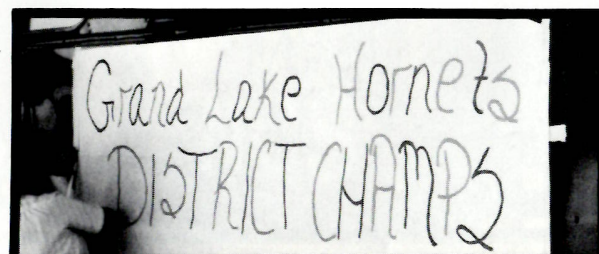 Grand Lake Hornets
DISTRICT CHAMPS